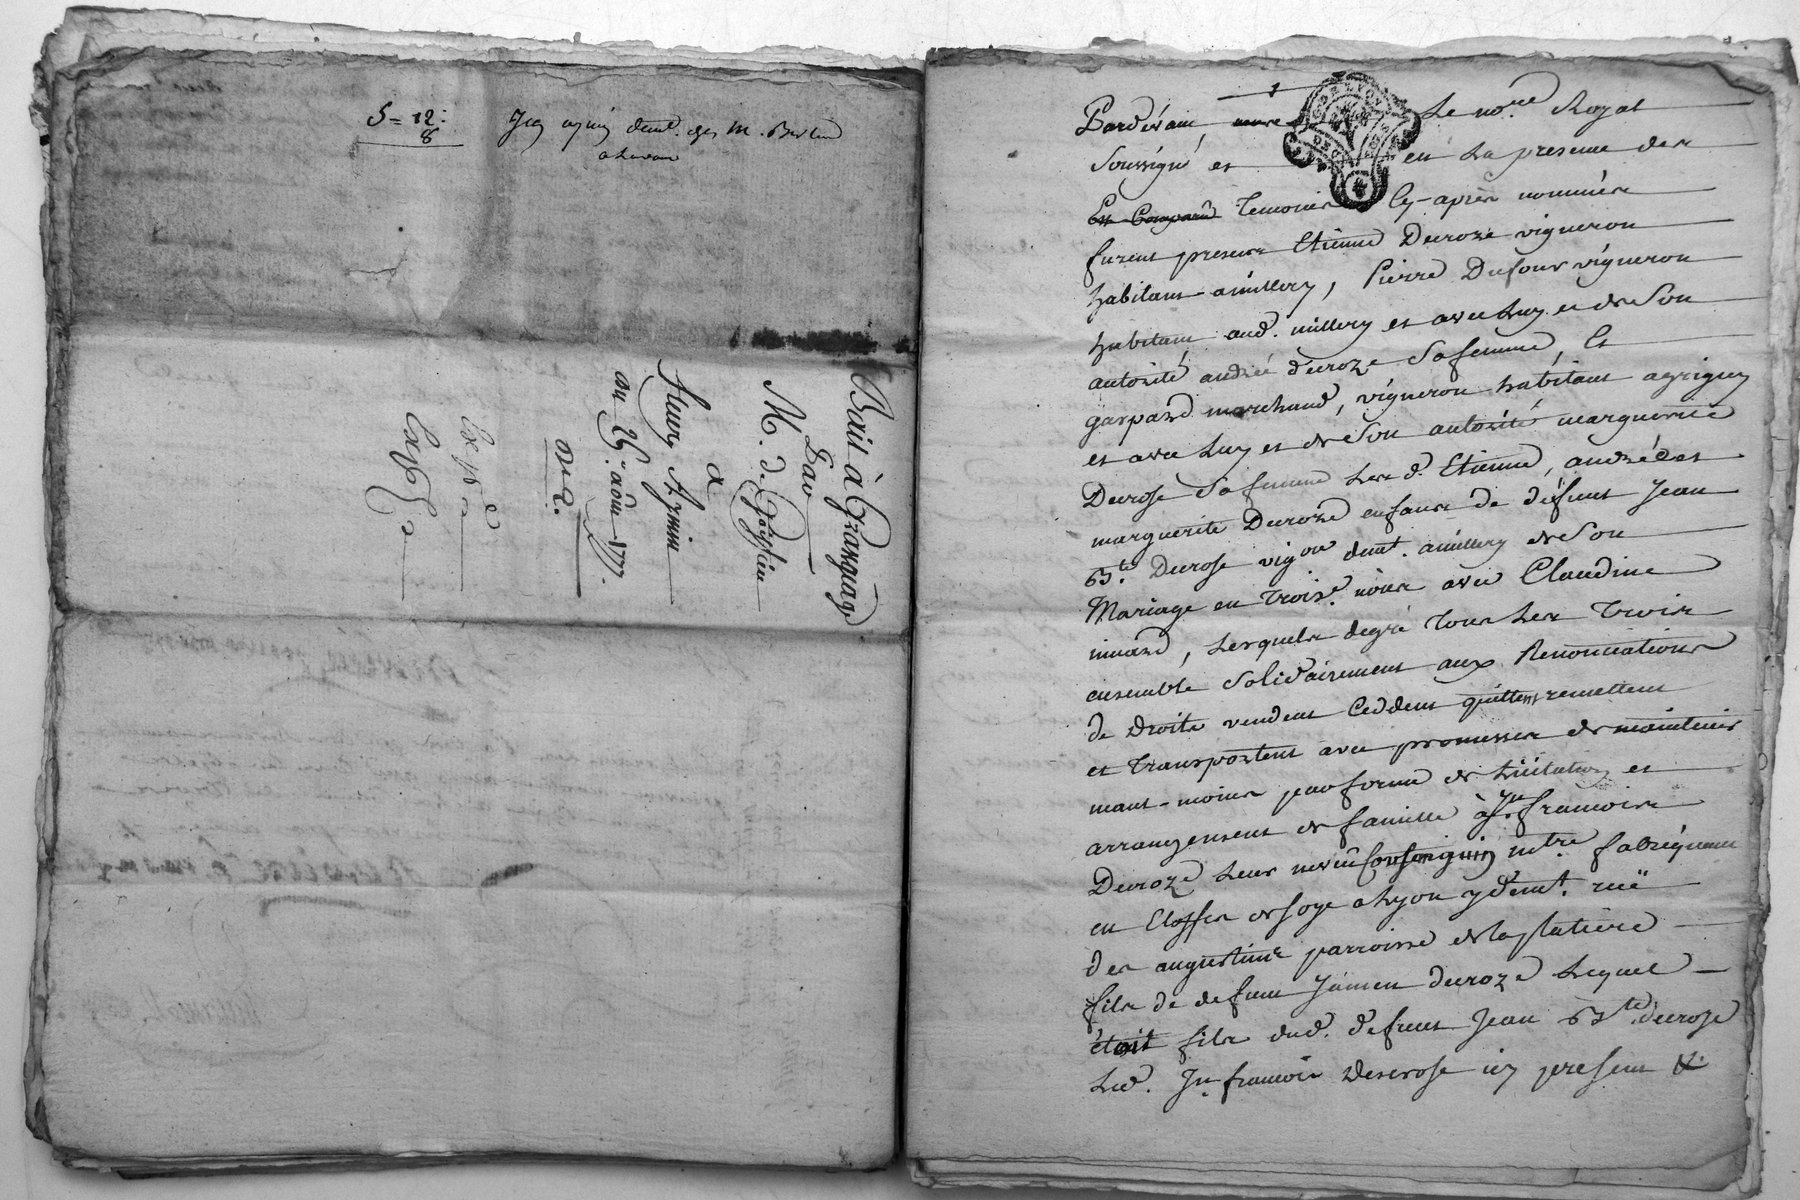 5 = 12:
8
M. Berlin
Bail à Grangeage
Par
M. De
a
Fleury Aymin
du 25. août 1777.
Exp.
Pardevant Le no.re Royal
Soussigné et en La presence des
Et Comparu Temoins Cy-après nommés
furent presens Etienne Decroze vigneron
habitant a millery, Pierre Dufour vigneron
habitant aud. millery et avec Luy et de Son
autorité andrée décroze Sa femme, Et
gaspard marchand, vigneron habitant a grigny
et avec Luy et de Son autorité marguerite
Decrose Sa femme Les d. Etienne, andrée et
marguerite Decroze enfans de défunt Jean
B.te Decrose vig.on dem.t a millery de Son
Mariage en trois.e nôces avec Claudine
, Lesquels degré tous Les Trois
ensemble Solidairement aux Renonciations
de Droits vendent Ceddent quittent remettent
et transportent avec promesses de maintenir
mant-moins par forme de Licitation et
arrangement de famille à Jn. francois
Decroze Leur neveu mtre. fabriquant
en Etoffes de soye a Lyon y dem.t rüe
des augustins parroisse de la platiere
fils de defunt decroze Lequel
étoit fils dud. defunt Jean B.te decroze
Led. Jn. francois Descrose icy present &
DE LYON